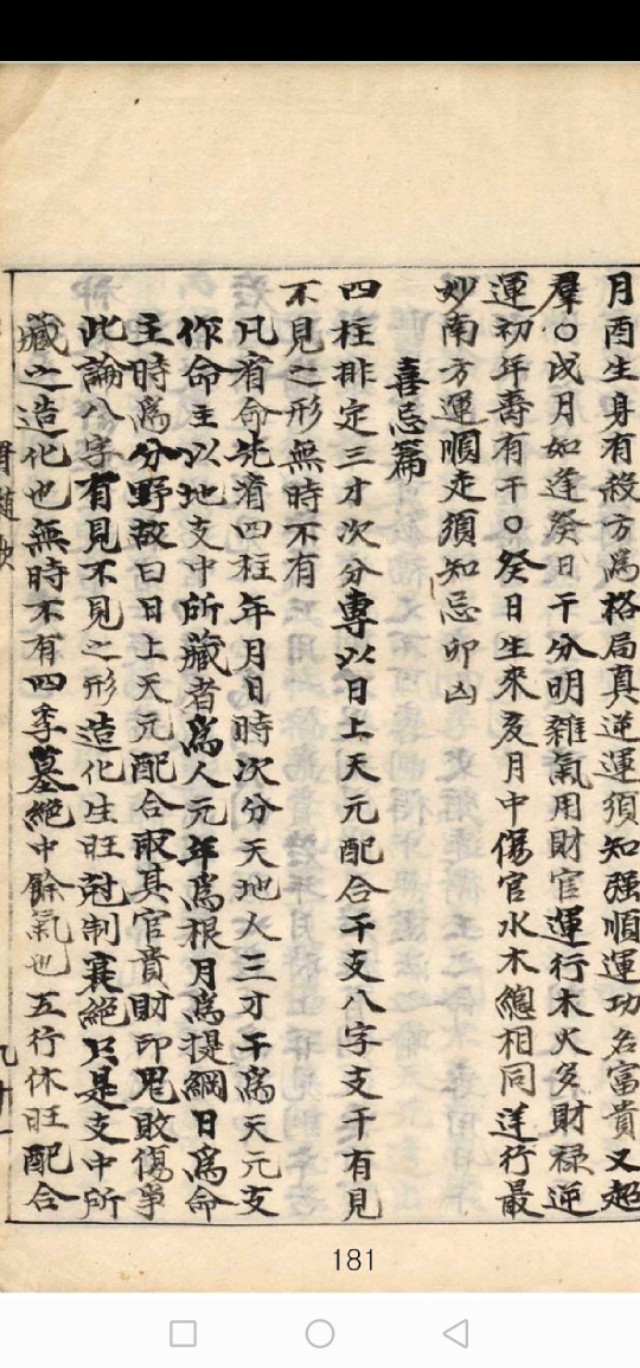 月酉生身有殺方為格局真逆運須知强順運功名富貴又超
羣○戌月如逢癸日干分明雜氣用財官運行木火多財禄逆
運初年壽有干○癸日生來亥月中傷官水木總相同逆行最
妙南方運順走須知忌卯凶
喜忌篇
四柱排定三才次分專以日上天元配合干支八字支干有見
不見之形無時不有
凡看命先淯四柱年月日時次分天地人三才干為天元支
作命主以地支中所藏者為人元年為根月為提綱日為命
主時為分野故曰日上天元配合取其官貴財印鬼敗傷事
此論八字有見不見之形造化生旺尅制衰絕只是支中所
藏之造化也無時不有四季墓絕中餘氣也五行休旺配合
九十一
181